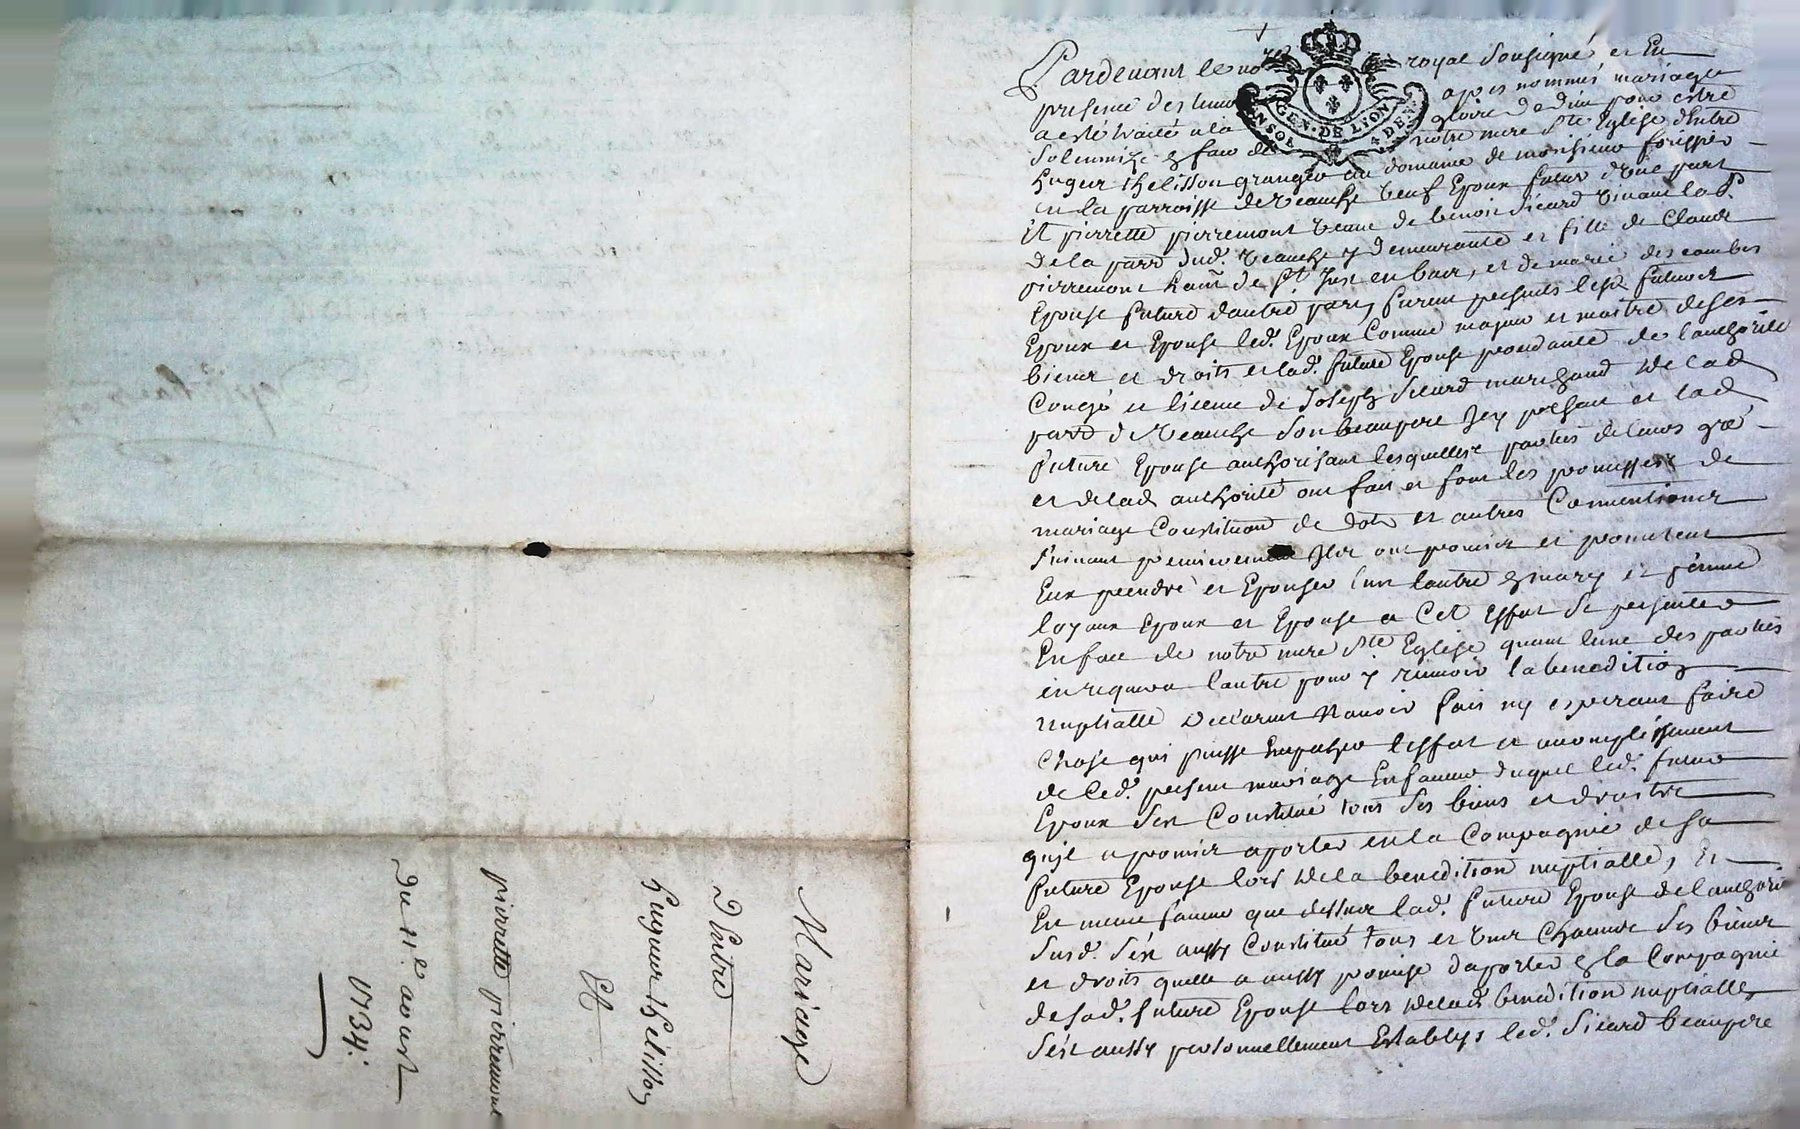 Pardevant le no royal Sousigné et En
presence des temo apres nommés mariage
a esté traité a la gloire de dieu pour estre
Solemnizé en face de notre mere Ste Eglise d'Entre
hugue thelisson granger au domaine de monsieur forissier
en la parroisse de Veauche veuf Epoux futur d'Une part
Et pierrette pierremont veuve de benoit Sicard vivant lad.
de la parr dud. veauche y demeurante et fille de Claude
pierremont hant de St Just en bas, et de marie des combes
Epouse future d'autre part, furent presents lesd futurs
Epoux et Epouse led. Epoux Comme majeur et maitre de ses
biens et droits et lad. future Epouse procedante de l'authorité
Congé et licence de Joseph Sicard marchand de lad
parr de veauche Son beaupere Icy present et lad
future Epouse authorisant lesquelles parties de leurs gré
et de lad authorité ont fait et font les promesses de
mariage Constitution de dots et autres Conventions
Suivant premierement Ils ont promis et promettent
Eux prendre et Epouser l'un l'autre en mary et femme
loyaux Epoux et Epouse a Cet Effet Se presenter
En face de notre mere Ste Eglise quant l'une des parties
en requerra l'autre pour y recevoir la benedition
nuptialle declarant N'avoir fait ny esperant faire
Chose qui puisse Empecher l'effet et accomplissement
de Ced. present mariage En faveur duquel led. futur
Epoux S'est Constitué tous Ses biens et droits
qu'il a promis aporter en la Compagnie de Sa
future Epouse lors de la benedition nuptialle, Et
En meme faveur que dessus lad. future Epouse de l'authorité
Susd. S'est aussy Constitué tous et uns Chacuns Ses biens
et droits quelle a aussy promise d'aporter en la Compagnie
de Sad. future Epouse lors de lad. benedition nuptialle,
S'est aussy personnellement Establys led. Sicard beaupere
GEN. DE LION
Mariage
D'Entre
hugue thelisson
Et
pierrette pierremont
Du 11e aoust
1734.